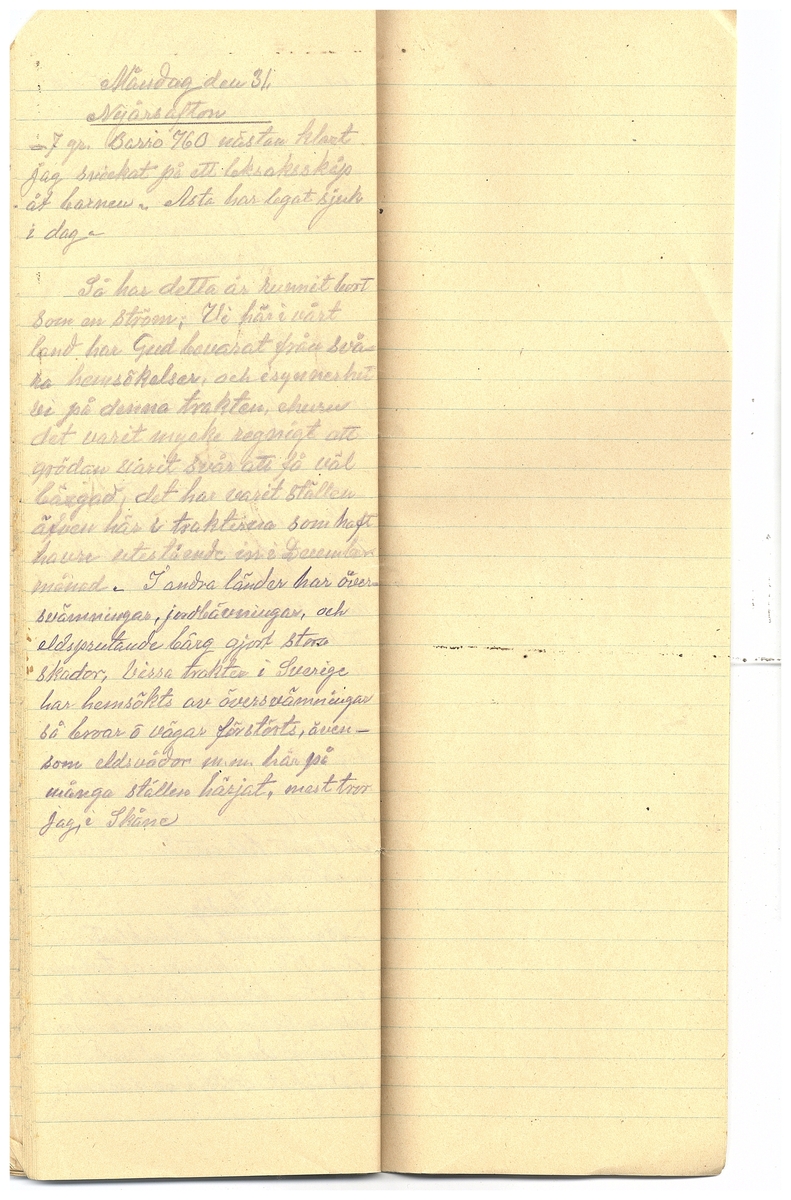 Måndag den 31.
Nyårsafton
-7 gr. Barro 760 nästan klart
jag snickat på ett leksaksskåp
åt barnen. Asta har legat sjuk
i dag.
Så har detta år runnit bort
som en ström; Vi här i vårt
land har Gud bevarat från svå-
ra hemsökelser, och isynnerhet
vi på denna trakten, ehuru
det varit mycke regnigt att
grödan varit svår att få väl
bärgad, det har varit ställen
äfven här i trakterna som haft
havre utestående in i December
månad. I andra länder har över-
svämningar, jordbävningar, och
eldsprutande bärg gjort stora
skador, vissa trakter i Sverige
har hemsökts av översvämningar
så broar o vägar förstörts, även-
som eldsvådor m.m. här på
många ställen härjat, mest tror
jag, i Skåne